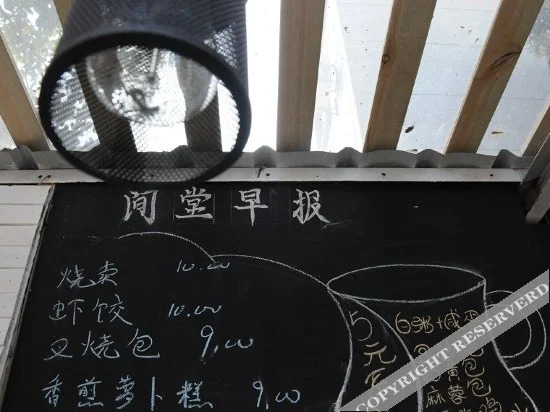 闻堂早报
烧卖 10.00
虾饺 10.00
叉烧包 9.00
香煎萝卜糕 9.00
5元
白粥+咸蛋
黄包
麻蓉包
COPYRIGHT RESERVED